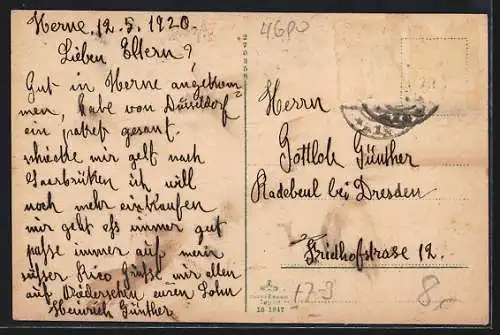 Herne, 12.5.1920.
Lieben Eltern?
Gut in Herne angekom-
men, habe von Düsseldorf
ein paket gesant.
schickte mir gelt nach
Saarbrüken ich will
noch mehr einkaufen
mir geht ess immer gut
passe immer auf mein
süsser Rico Grüsse mir allen
auf Wiedersehn euren Sohn
Heinrich Günther
4680
Herrn
Gottlob Günther
Radebeul bei Dresden
Friedhofstrasse 12.
+23
8,-